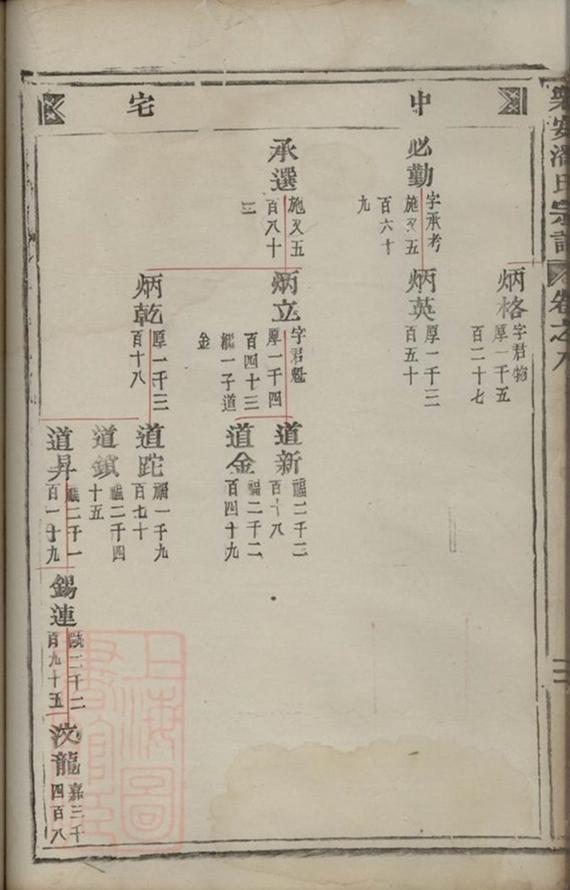 樂安潘氏宗譜
卷之八
中
宅
炳格
字君物
厚一千五
百二十七
必勤
字承考
施又五
百六十
九
炳英
厚一千三
百五十
承選
施又五
百八十
三
炳立
字君魁
厚一千四
百四十三
繼一子道
金
道新
福二千二
百十八
道金
福二千二
百四十九
炳乾
厚一千三
百十八
道跎
福一千九
百七十
道鎖
福二千四
十五
道昇
福二千一
百一十九
錫蓮
二千二
百九十五
汶龍
嘉三千
四百八
上海圖
書館臧